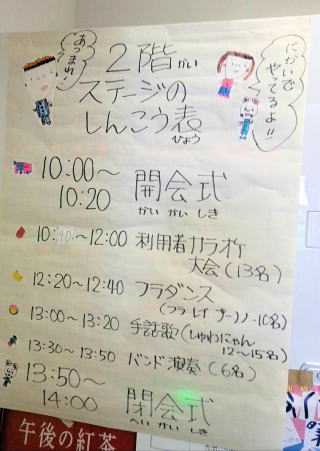 あつまれ!
2階かい
ステージの
しんこう表ひょう
にかいで
やってるよ!!
10:00〜
10:20
開会式
かい かい しき
10:40〜12:00 利用者カラオケ
大会(13名)
12:20〜12:40 フラダンス
10名)
13:00〜13:20 手話歌(しゅわにゃん
12〜15名)
13:30〜13:50 バンド演奏(6名)
13:50〜
14:00
閉会式
へい かい しき
午後の紅茶